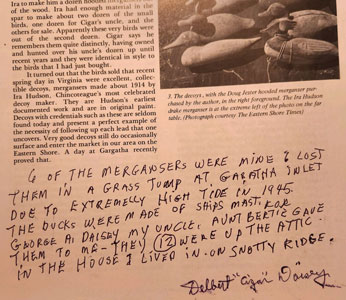 Ira to make him a dozen hooded mergansers
of the wood. Ira had enough material in the
spar to make about two dozen of the small
birds, one dozen for Cigar's uncle, and the
others for sale. Apparently these very birds were
out of the second dozen. Cigar says he
remembers them quite distinctly, having owned
and hunted over his uncle's down up until
recent years and they are identical in style to
the birds that I had just bought.
It turned out that the birds sold that recent
spring day in Virginia were excellent, collec-
tible decoys, mergansers made about 1914 by
Ira Hudson, Chincoteague's most celebrated
decoy maker. They are Hudson's earliest
documented work and are in original paint.
Decoys with credentials such as these are seldom
found today and present a perfect example of
the necessity of following up each lead that one
uncovers. Very good decoys still do occasionally
surface and enter the market in our area on the
Eastern Shore. A day at Gargatha recently
proved that.
3. The decoys, with the Doug Jester hooded merganser pur-
chased by the author, in the right foreground. The Ira Hudson
drake merganser is at the extreme left of the photo on the far
table. (Photograph courtesy The Eastern Shore Times)
6 OF THE MERGANSERS WERE MINE I LOST
THEM IN A GRASS TUMP AT GARGATHA INLET
DUE TO EXTREMELY HIGH TIDE IN 1945.
THE DUCKS WERE MADE OF SHIPS MAST, FOR
GEORGE A. DAISEY MY UNCLE, AUNT BERTIE GAVE
THEM TO ME - THEY (12) WERE UP THE ATTIC
IN THE HOUSE I LIVED IN ON SNOTTY RIDGE.
Delbert "Cigar" Daisey